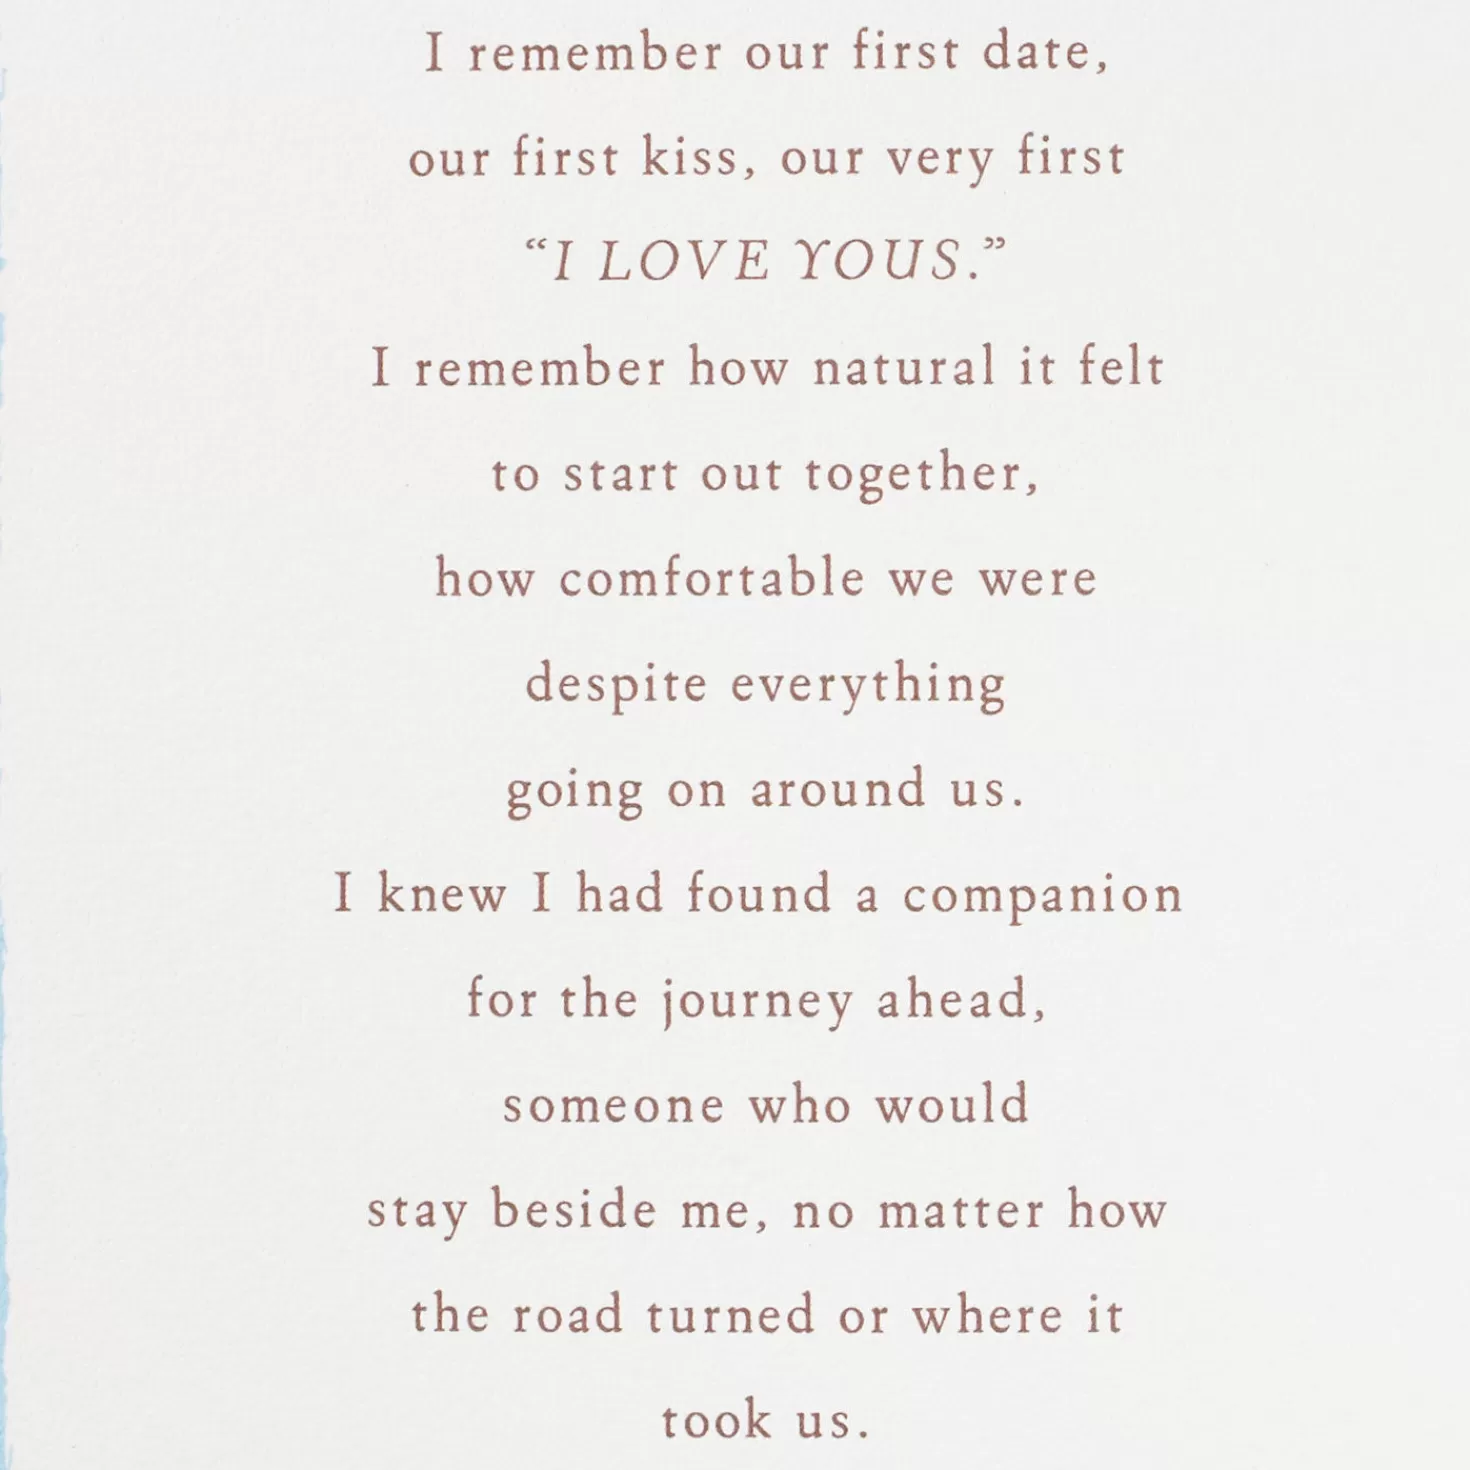 I remember our first date,
our first kiss, our very first
“I LOVE YOUS.”
I remember how natural it felt
to start out together,
how comfortable we were
despite everything
going on around us.
I knew I had found a companion
for the journey ahead,
someone who would
stay beside me, no matter how
the road turned or where it
took us.